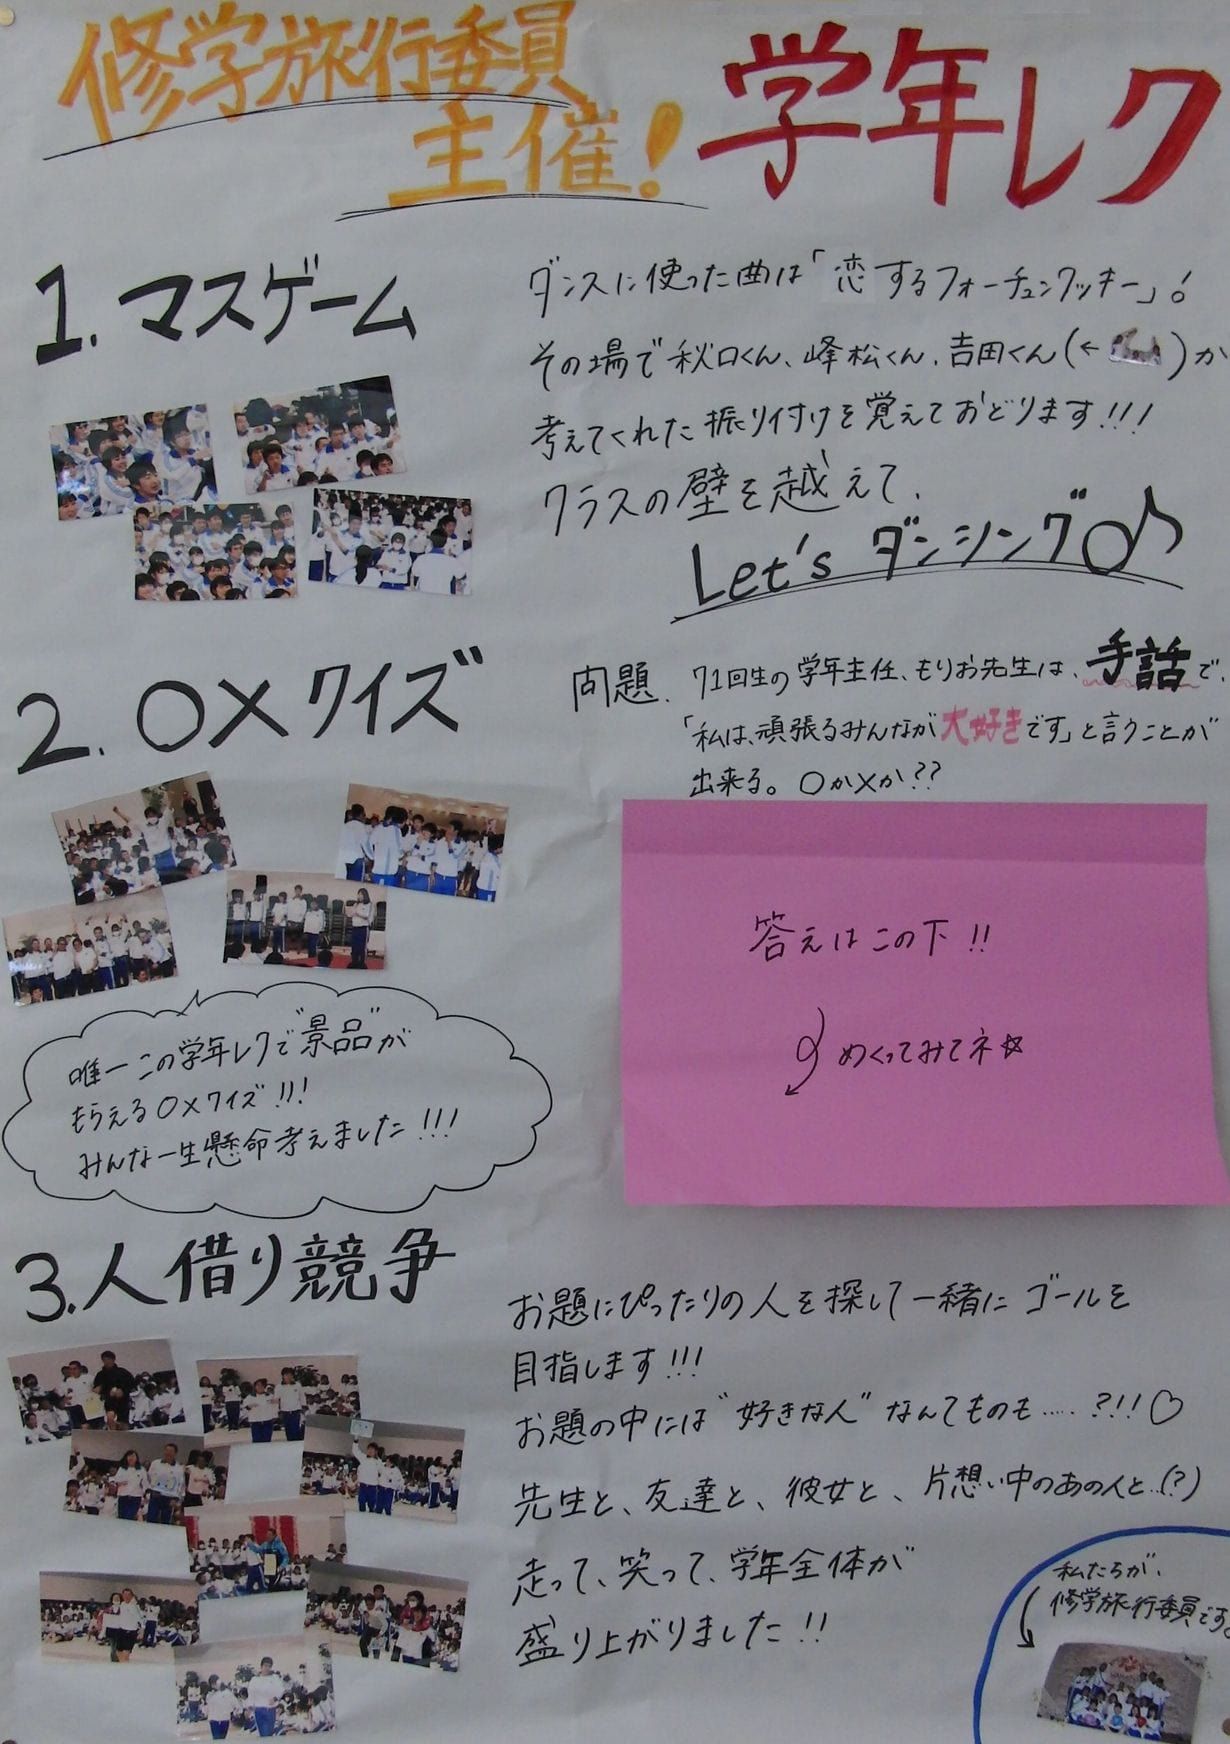 修学旅行委員
主催！
学年レク
1. マスゲーム
ダンスに使った曲は「恋するフォーチュンクッキー」！
その場で秋口くん、峰松くん、吉田くん(← )が
考えてくれた振り付けを覚えておどります!!!
クラスの壁を越えて、
Let's ダンシング♪
2. ○×クイズ
問題.
71回生の学年主任、もりお先生は、手話で、
「私は、頑張るみんなが大好きです」と言うことが
出来る。○か×か??
答えはこの下!!
めくってみてネ☆
唯一この学年レクで"景品"が
もらえる○×クイズ!!!
みんな一生懸命考えました!!!
3. 人借り競争
お題にぴったりの人を探して一緒にゴールを
目指します!!!
お題の中には"好きな人"なんてものも……?!!♡
先生と、友達と、彼女と、片想い中のあの人と…(?)
走って、笑って、学年全体が
盛り上がりました!!
私たちが、
修学旅行委員です。